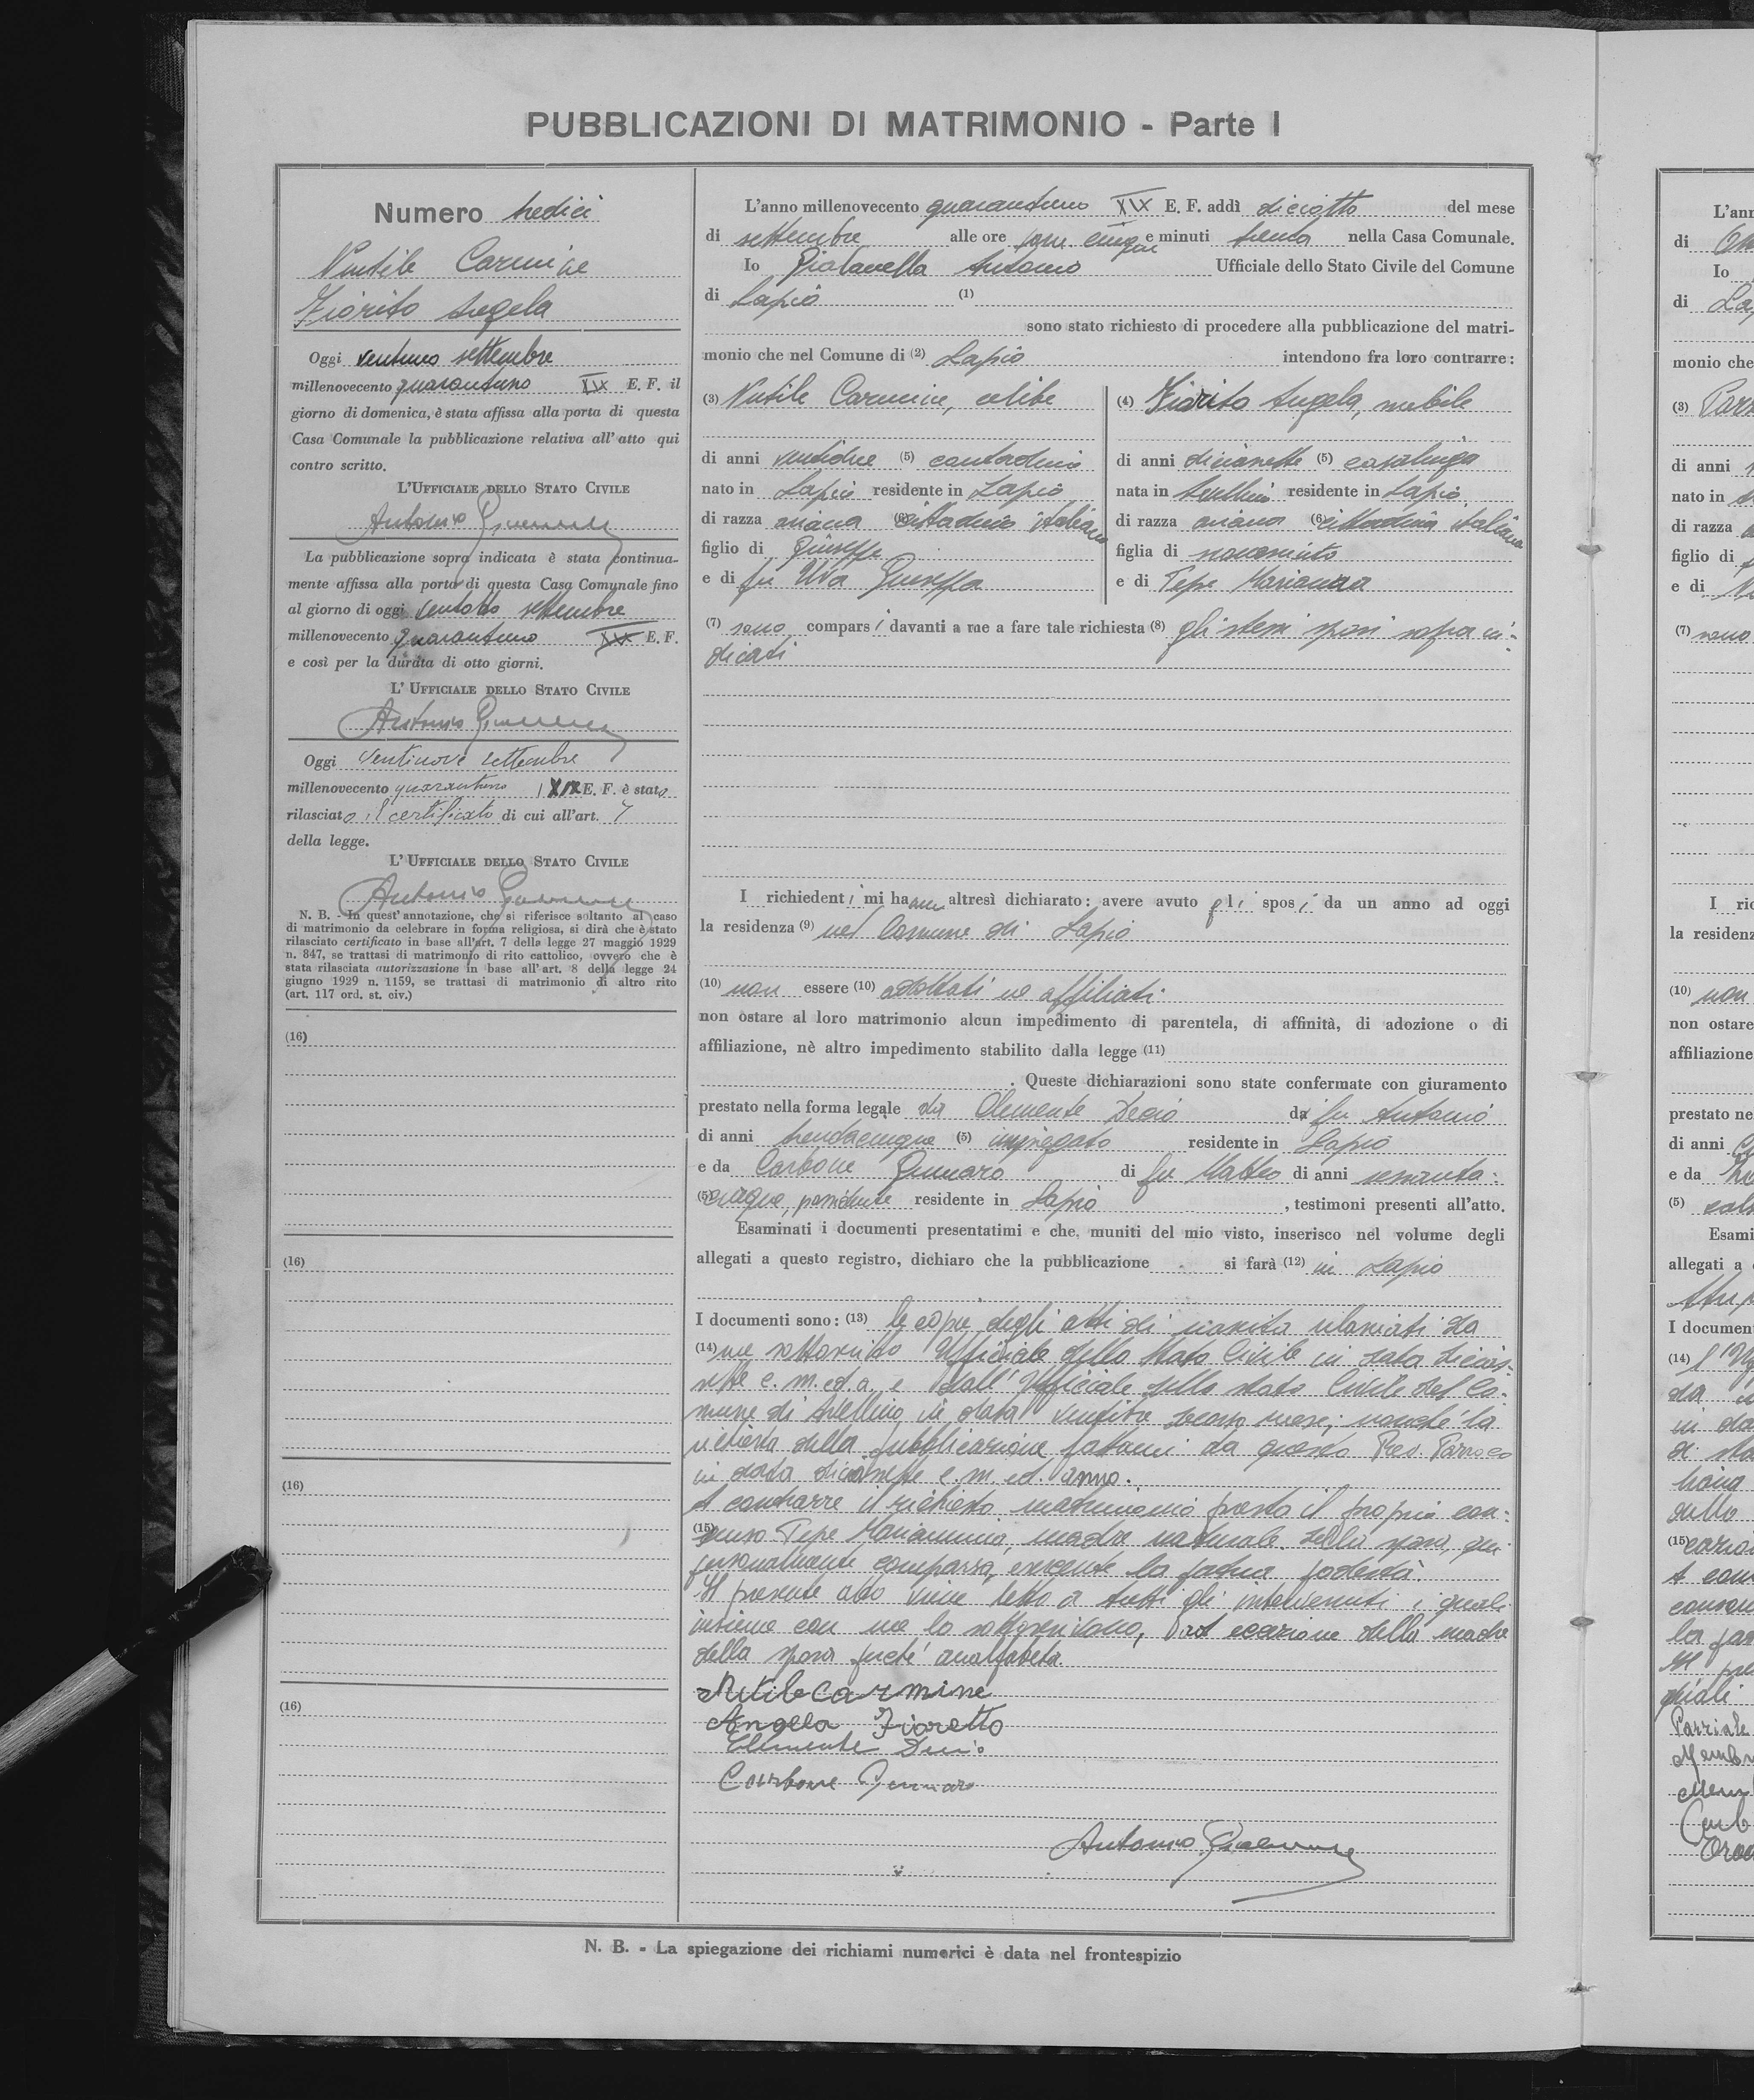 PUBBLICAZIONI DI MATRIMONIO - Parte I
Numero tredici
Nutile Carmine
Fiorito Angela
Oggi ventuno settembre
millenovecento quarantuno XIX E. F. il
giorno di domenica, è stata affissa alla porta di questa
Casa Comunale la pubblicazione relativa all'atto qui
contro scritto.
L'UFFICIALE DELLO STATO CIVILE
Antonio
La pubblicazione sopra indicata è stata continua-
mente affissa alla porta di questa Casa Comunale fino
al giorno di oggi ventotto settembre
millenovecento quarantuno XIX E. F.
e così per la durata di otto giorni.
L'UFFICIALE DELLO STATO CIVILE
Antonio
Oggi ventinove settembre
millenovecento quarantuno XIX E. F. è stato
rilasciato il certificato di cui all'art. 7
della legge.
L'UFFICIALE DELLO STATO CIVILE
Antonio
N. B. - In quest'annotazione, che si riferisce soltanto al caso
di matrimonio da celebrare in forma religiosa, si dirà che è stato
rilasciato certificato in base all'art. 7 della legge 27 maggio 1929
n. 847, se trattasi di matrimonio di rito cattolico, ovvero che è
stata rilasciata autorizzazione in base all'art. 8 della legge 24
giugno 1929 n. 1159, se trattasi di matrimonio di altro rito
(art. 117 ord. st. civ.)
(16)
(16)
(16)
(16)
L'anno millenovecento quarantuno XIX E. F. addì diciotto del mese
di settembre alle ore cinque e minuti trenta nella Casa Comunale.
Io Antonio Ufficiale dello Stato Civile del Comune
di Lapio (1)
sono stato richiesto di procedere alla pubblicazione del matri-
monio che nel Comune di (2) Lapio intendono fra loro contrarre:
(3) Nutile Carmine, celibe
di anni ventidue (5) contadino
nato in Lapio residente in Lapio
di razza ariana (6) cittadino italiano
figlio di Giuseppe
e di fu Uva Giuseppa
(4) Fiorito Angela, nubile
di anni diciassette (5) casalinga
nata in Avellino residente in Lapio
di razza ariana (6) cittadina italiana
figlia di
e di Pepe Marianna
(7) sono comparsi davanti a me a fare tale richiesta (8) gli stessi sposi sopra in-
dicati
I richiedenti mi hanno altresì dichiarato: avere avuto gli sposi da un anno ad oggi
la residenza (9) nel Comune di Lapio
(10) non essere (10) adottati ne affiliati
non ostare al loro matrimonio alcun impedimento di parentela, di affinità, di adozione o di
affiliazione, nè altro impedimento stabilito dalla legge (11)
. Queste dichiarazioni sono state confermate con giuramento
prestato nella forma legale da Clemente Decio di fu Antonio
di anni trentacinque (5) impiegato residente in Lapio
e da Carbone Gennaro di fu Matteo di anni sessanta:
(5) cinque, possidente residente in Lapio , testimoni presenti all'atto.
Esaminati i documenti presentatimi e che, muniti del mio visto, inserisco nel volume degli
allegati a questo registro, dichiaro che la pubblicazione si farà (12) in Lapio
I documenti sono: (13) le copie degli atti di nascita rilasciati da
(14) me sottoscritto Ufficiale dello Stato Civile in data dicias-
sette c. m. ed a. e dall'Ufficiale dello stato Civile del Co-
mune di Avellino in data ventitre scorso mese; nonché la
richiesta della pubblicazione fattami da questo Rev. Parroco
in data diciassette c. m. ed. anno.
A contrarre il richiesto matrimonio presta il proprio con-
(15) senso Pepe Mariannina, madre naturale della sposa, qui
personalmente comparsa, esercente la patria podestà.
Il presente atto viene letto a tutti gli intervenuti i quali
insieme con me lo sottoscrivono, ad eccezione della madre
della sposa perché analfabeta.
Nutile Carmine
Angela Fioretto
Clemente Decio
Carbone Gennaro
Antonio
N. B. - La spiegazione dei richiami numerici è data nel frontespizio